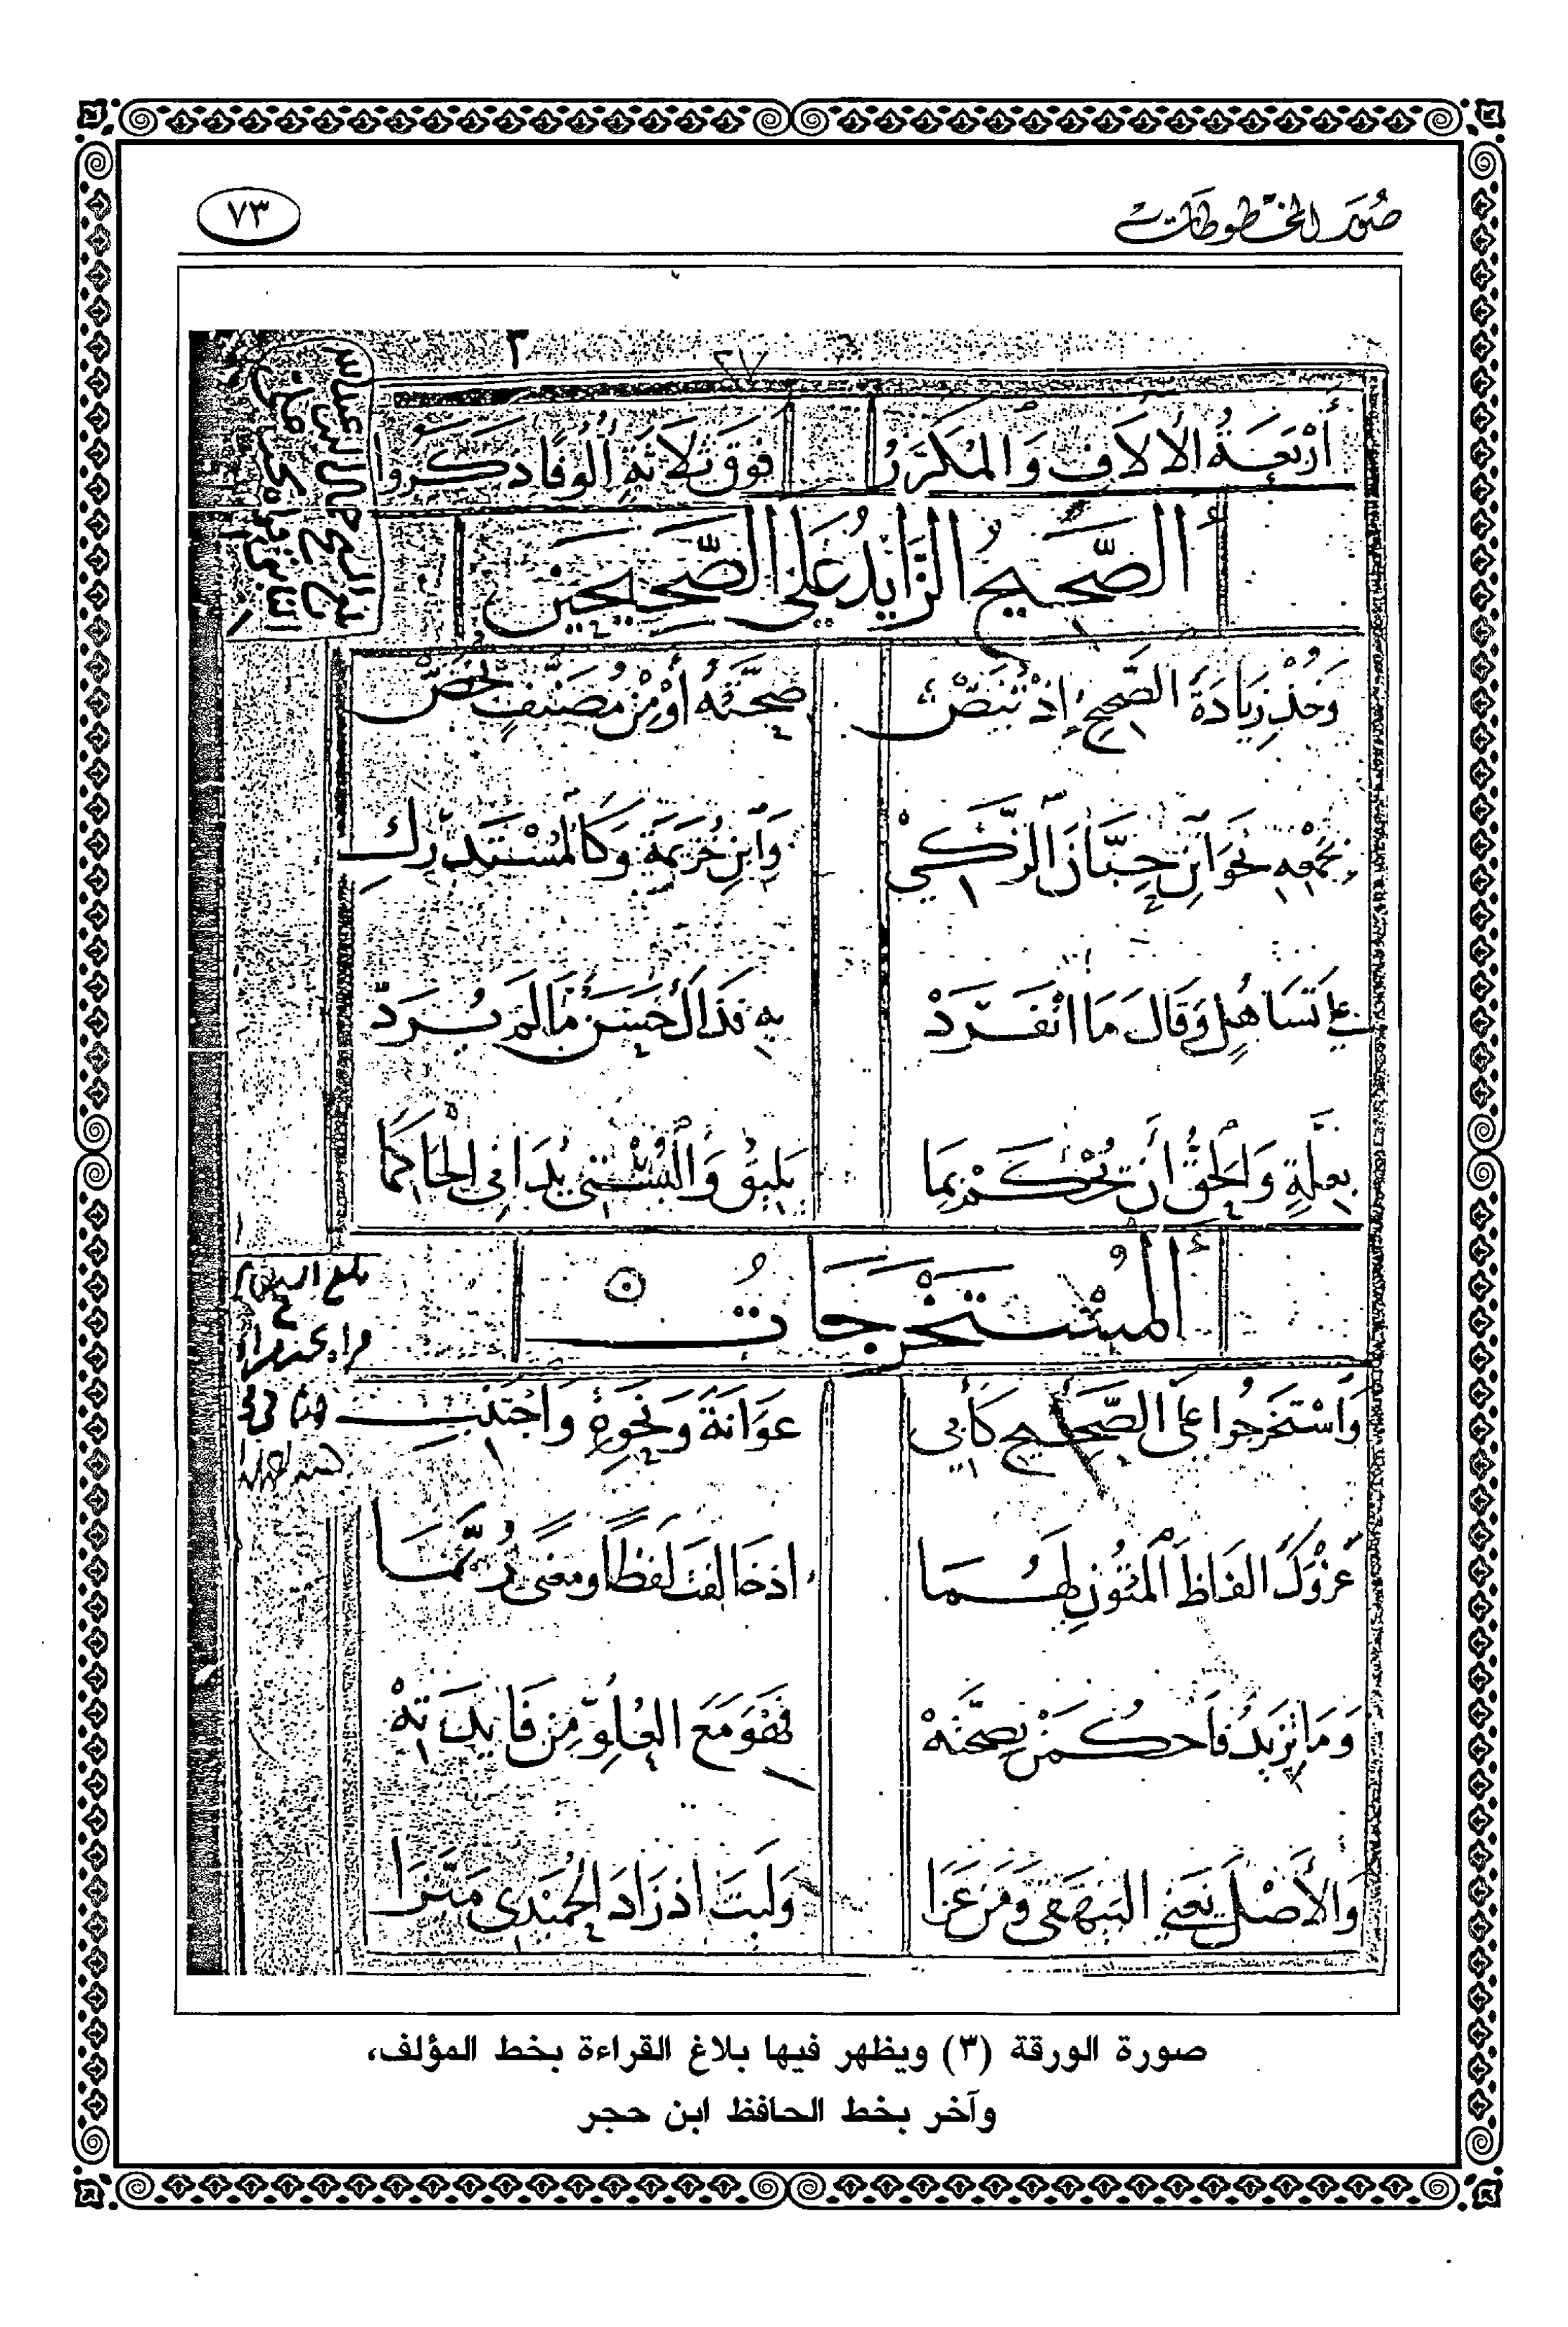 صُوَر المخطوطات
٧٣
٣
٢٧
أَرْبَعَةُ الْآلَافِ وَالْمُكَرَّرُ فَوْقَ ثَلَاثَةٍ أُلُوفًا ذَكَرُوا
أَلصَّحِيحُ الزَّايِدُ عَلَى الصَّحِيحَيْنِ
وَخُذْ زِيَادَةَ الصَّحِيحِ إِذْ تُنَصّْ صِحَّتُهُ أَوْ مِنْ مُصَنَّفٍ يُخَصّْ
بِجَمْعِهِ نَحْوَ ابْنِ حِبَّانَ الزَّكِيْ وَابْنِ خُزَيْمَةَ وَكَالْمُسْتَدْرَكِ
عَلَى تَسَاهُلٍ وَقَالَ مَا انْفَرَدْ بِهِ فَذَاكَ حَسَنٌ مَا لَمْ يُرَدّْ
بِعِلَّةٍ وَالْحَقُّ أَنْ يُحْكَمْ بِمَا يَلِيقُ وَالْبُسْتِيُّ يُدَانِي الْحَاكِمَا
أَلْمُسْتَخْرَجَاتُ
وَاسْتَخْرَجُوا عَلَى الصَّحِيحِ كَأَبِي عَوَانَةٍ وَنَحْوِهِ وَاجْتَنِبِ
عَزْوَكَ أَلْفَاظَ الْمُتُونِ لَهُمَا إِذْ خَالَفَتْ لَفْظًا وَمَعْنًى رُبَّمَا
وَمَا يَزِيدُ فَاحْكُمَنْ بِصِحَّتِهْ فَهْوَ مَعَ الْعُلُوِّ مِنْ فَايِدَتِهْ
وَالْأَصْلَ يَعْنِي الْبَيْهَقِي وَمَنْ عَزَا وَلَيْتَ إِذْ زَادَ الْحُمَيْدِي مَيَّزَا
صورة الورقة (٣) ويظهر فيها بلاغ القراءة بخط المؤلف،
وآخر بخط الحافظ ابن حجر